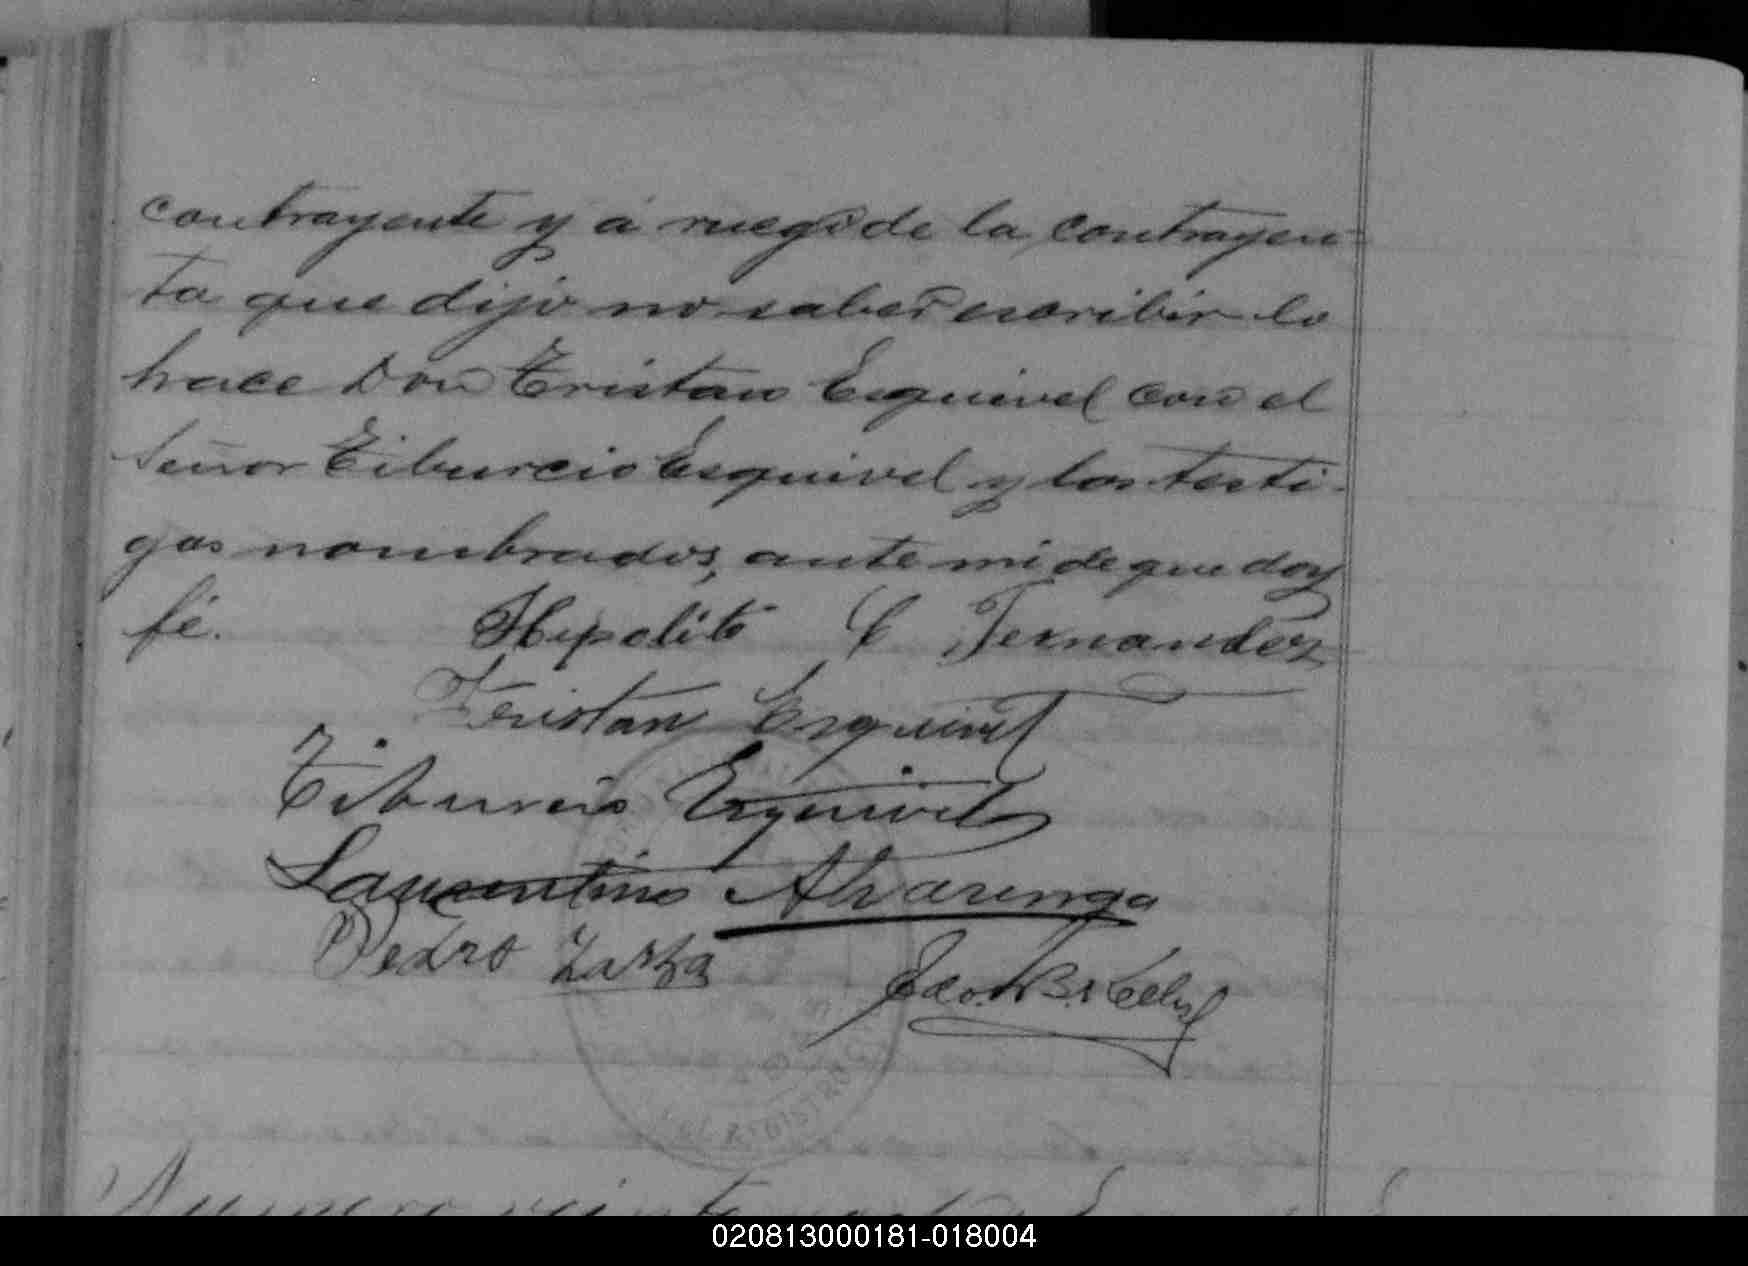 contrayente y á ruego de la contrayen-
ta que dijo no saber escribir lo
hace Don Tristan Esquivel con el
Señor Tiburcio Esquivel y los testi-
gos nombrados, ante mi de que doy
fé. Hipolito C Fernandez
Tristan Esquivel
Tiburcio Esquivel
Laurentino Alvarenga
Pedro Zarza
REGISTRO
Numero veinte
020813000181-018004